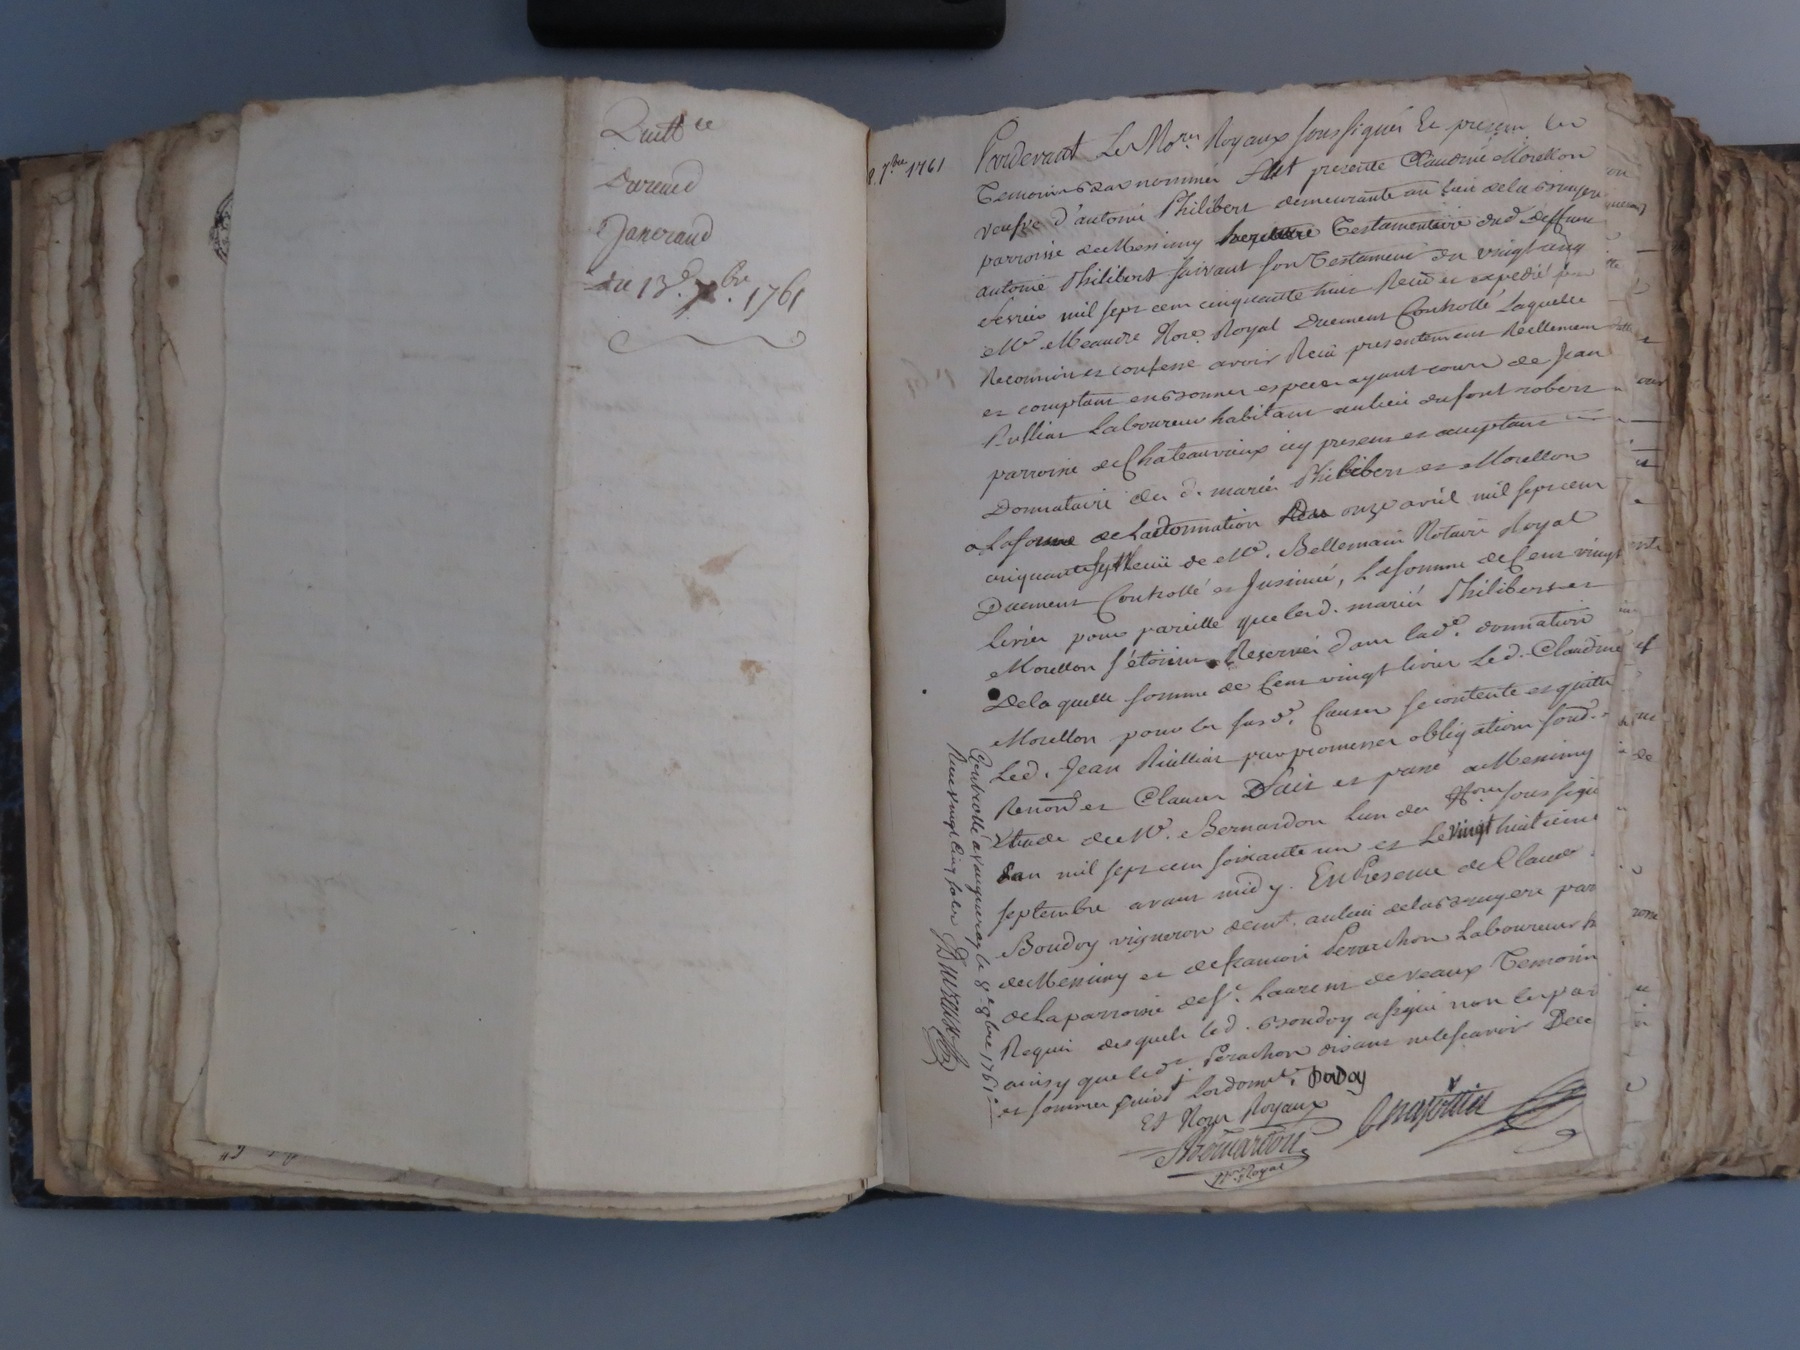 Quitt ce
Durand
Jancrand
du 13.e 7.bre 1761
8. 7bre 1761
Pardevant Les Nores Royaux soussignés Et presents les
Temoins bas nommés fut presente Claudine Morellon
veufve d'antoine Philibert demeurante au lieu de la bruyere
parroisse de Messimy heritiere Testamentaire dud deffunt
antoine Philibert suivant son Testament du vingt cinq
fevrier mil sept cent cinquante huit Receu et expedié par
Me Meaudre Nore Royal Duement Controllé Laquelle
Reconnoit et confesse avoir Receu presentement Reellement
et comptant en bonnes especes ayant cours de Jean
Rullias Laboureur habitant au lieu du font robert
parroisse de Chateauvieux icy present et acceptant
Donnataire des d. mariés Philibert et Morellon
a La forme de La donnation du onze avril mil sept cent
cinquante sept Receüe de Me. Bellemain Notaire Royal
Duement Controllé et Insinué, La somme de Cent vingt
livres pour pareille que les d. mariés Philibert et
Morellon s'étoient Reservés dans lad.e donnation
De la quelle somme de Cent vingt livres Led. Claudine
Morellon pour les susd.es Causes se contente et quitte
Led. Jean Rullias par promesses obligations sond.
Renond. et Clauses Fait et passé a Messimy
Etude de Me. Bernardon L'un des Nores soussignés
L'an mil sept cent soixante un et Le vingt huitieme
septembre avant midy. En Presence de Claude
Boudoy vigneron demt. au lieu de la bruyere par
de Messimy et de francois Perachon Laboureur
de La parroisse de St. Laurent de Veaux Temoins
Requis desquels led. Boudoy a signé non les par
ainsy que led. Perachon disant ne le scavoir De ce
et sommés suivt Lordonce. BoDoy
Et Nores Royaux
Bernardon
Nre Royal
Controllé a Vaugneray le 8e 8bre 1761
Receu vingt cinq sols